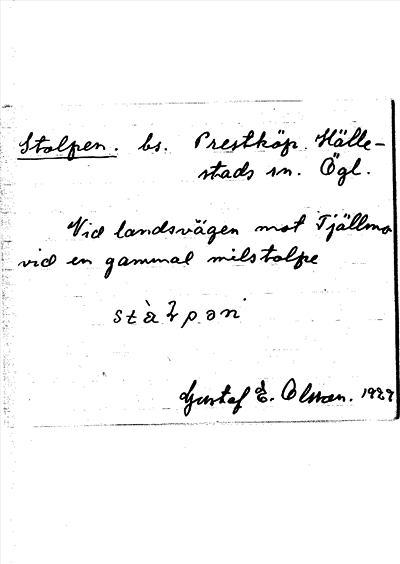 Stolpen. bs. Prestköp. Hälle-
stads sn. Ögl.
Vid landsvägen mot Tjällmo
vid en gammal milstolpe
stàɫpən
Gustaf E. Olsson. 1927